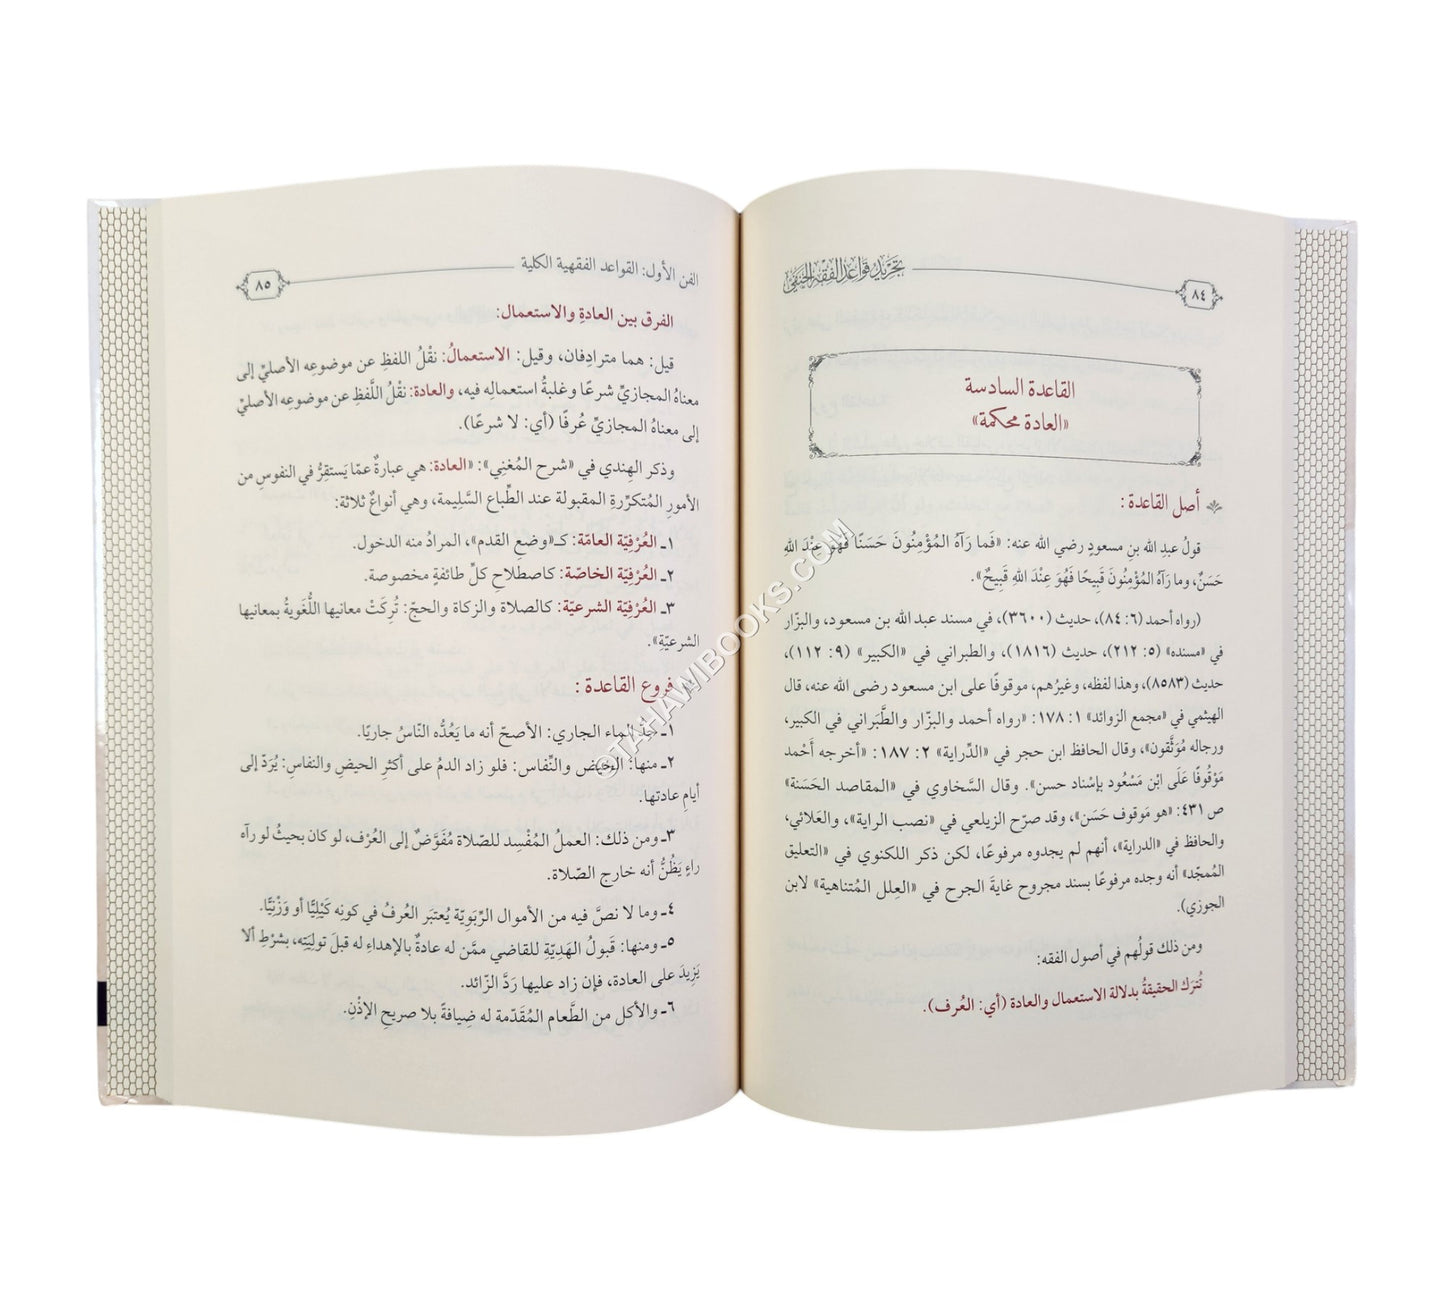 ٨٤
تجريد قواعد الفقه الحنفي
القاعدة السادسة
«العادة محكمة»
أصل القاعدة:
قولُ عبدِ الله بنِ مسعودٍ رضي الله عنه: «فَما رَآهُ المُؤْمِنُونَ حَسَنًا فَهُوَ عِنْدَ اللهِ
حَسَنٌ، وما رَآهُ المُؤْمِنُونَ قَبِيحًا فَهُوَ عِنْدَ اللهِ قَبِيحٌ».
(رواه أحمد (٦: ٨٤)، حديث (٣٦٠٠)، في مسند عبد الله بن مسعود، والبزّار
في «مسنده» (٥: ٢١٢)، حديث (١٨١٦)، والطبراني في «الكبير» (٩: ١١٢)،
حديث (٨٥٨٣)، وهذا لفظه، وغيرُهم، موقوفًا على ابن مسعود رضي الله عنه، قال
الهيثمي في «مجمع الزوائد» ١: ١٧٨: «رواه أحمد والبزّار والطَّبَراني في الكبير،
ورجاله مُوَثَّقون»، وقال الحافظ ابن حجر في «الدِّراية» ٢: ١٨٧: «أخرجه أَحْمد
مَوْقُوفًا عَلَى ابْن مَسْعُود بإسْناد حسن». وقال السَّخاوي في «المقاصد الحَسَنة»
ص ٤٣١: «هو مَوقوف حَسَن»، وقد صرّح الزيلعي في «نصب الراية»، والعَلائي،
والحافظ في «الدراية»، أنهم لم يجدوه مرفوعًا، لكن ذكر اللكنوي في «التعليق
المُمجّد» أنه وجده مرفوعًا بسند مجروح غايةَ الجرح في «العِلل المُتناهية» لابن
الجوزي).
ومن ذلك قولُهم في أصول الفقه:
تُترَك الحقيقةُ بدلالة الاستعمال والعادة (أي: العُرف).
الفن الأول: القواعد الفقهية الكلية
٨٥
الفرق بين العادةِ والاستعمال:
قيل: هما مترادِفان، وقيل: الاستعمالُ: نقْلُ اللفظِ عن موضوعِه الأصليِّ إلى
معناهُ المجازيِّ شرعًا وغلبةُ استعمالِه فيه، والعادة: نقْلُ اللَّفظِ عن موضوعِه الأصليِّ
إلى معناهُ المجازيِّ عُرفًا (أي: لا شرعًا).
وذكر الهِندي في «شرح المُغني»: «العادة: هي عبارةٌ عمّا يَستقِرُّ في النفوسِ من
الأمورِ المُتكرِّرةِ المقبولة عند الطِّباع السَّلِيمة، وهي أنواعٌ ثلاثة:
١ـ العُرْفيّة العامّة: كـ«وضعِ القدم»، المرادُ منه الدخول.
٢ـ العُرْفِيّة الخاصّة: كاصطلاحِ كلِّ طائفةٍ مخصوصة.
٣ـ العُرْفِيّة الشرعيّة: كالصلاة والزكاة والحجّ: تُرِكَتْ معانيها اللُّغَويةُ بمعانيها
الشرعيّةِ».
فروع القاعدة:
١ـ حدُّ الماء الجاري: الأصحّ أنه ما يَعُدُّه النّاسُ جاريًا.
٢ـ منها: الحيض والنِّفاس: فلو زاد الدمُ على أكثرِ الحيضِ والنفاسِ: يُرَدّ إلى
أيامِ عادتها.
٣ـ ومن ذلك: العملُ المُفْسِد للصّلاة مُفَوَّضٌ إلى العُرْف، لو كان بحيثُ لو رآه
راءٍ يَظُنُّ أنه خارج الصّلاة.
٤ـ وما لا نصَّ فيه من الأموال الرِّبَويّة يُعتبَر العُرفُ في كونه كَيْلِيًّا أو وَزْنِيًّا.
٥ـ ومنها: قَبولُ الهَدِيّةِ للقاضي ممَّن له عادةٌ بالإهداء له قبلَ تولِيَتِه، بشرْطِ ألا
يَزِيدَ على العادة، فإن زاد عليها رَدَّ الزّائد.
٦ـ والأكل من الطَّعام المُقَدّمة له ضِيافةً بلا صريحِ الإذْنِ.
©TAHAWIBOOKS.COM